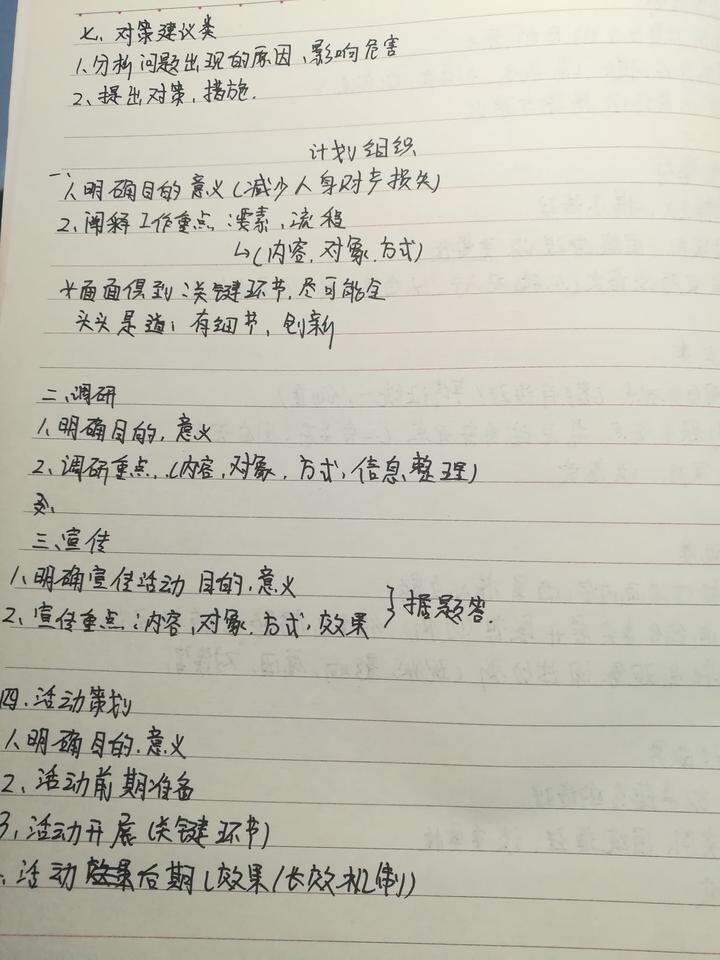 七、对策建议类
1、分析问题出现的原因、影响危害
2、提出对策,措施.
计划组织
一、
1、明确目的意义(减少人身财产损失)
2、阐释工作重点:要素,流程
↳(内容,对象,方式)
*面面俱到:关键环节,尽可能全
头头是道:有细节,创新
二、调研
1、明确目的,意义
2、调研重点,(内容,对象,方式,信息整理)
三、宣传
1、明确宣传活动目的,意义
2、宣传重点:内容,对象,方式,效果 }据题答.
四、活动策划
1、明确目的,意义
2、活动前期准备
3、活动开展(关键环节)
、活动后期(效果(长效机制)